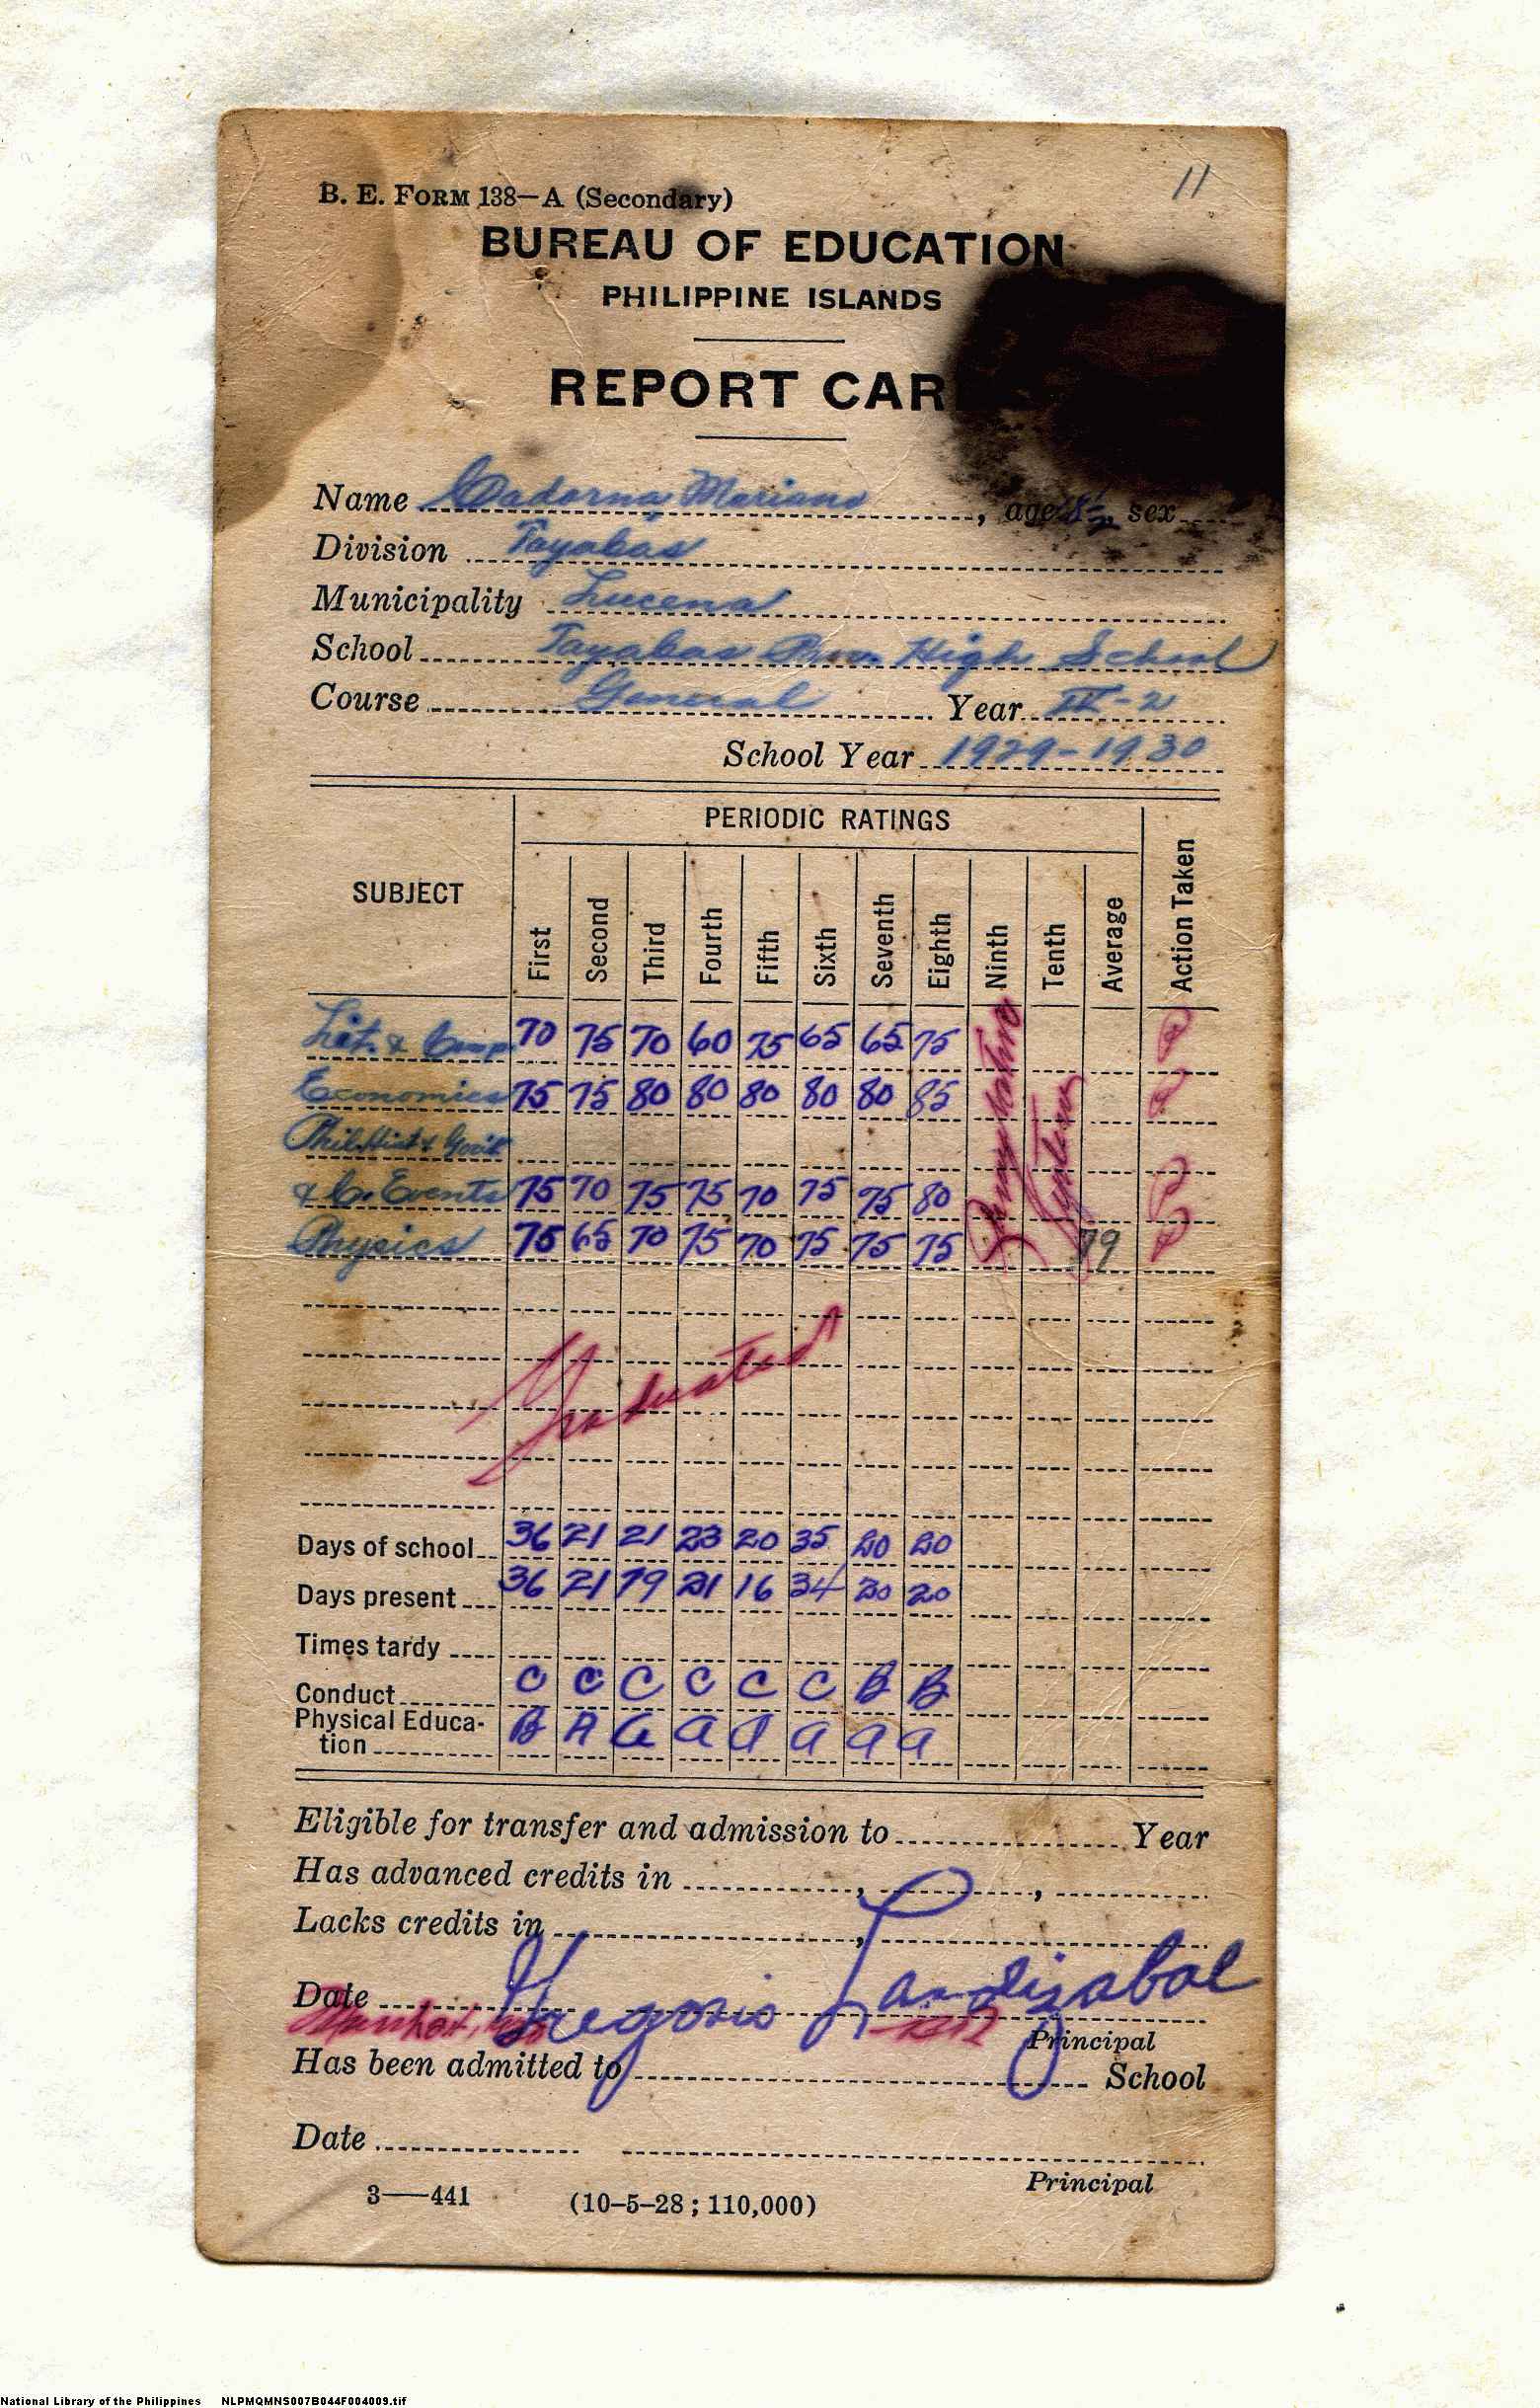 11
B. E. FORM 138—A (Secondary)
BUREAU OF EDUCATION
PHILIPPINE ISLANDS
REPORT CAR
Name Cadorna, Mariano, age sex
Division Tayabas
Municipality Lucena
School Tayabas Prov. High School
Course General Year IV-2
School Year 1929-1930
SUBJECT PERIODIC RATINGS Action Taken
First Second Third Fourth Fifth Sixth Seventh Eighth Ninth Tenth Average
Lit. & Comp. 70 75 70 60 75 65 65 75 P
Economics 75 75 80 80 80 80 80 85 P
Phil. Hist & Gov't
& C. Events 75 70 75 75 70 75 75 80 P
Physics 75 65 70 75 70 75 75 75 79 P
Graduated
Days of school 36 21 21 23 20 35 20 20
Days present 36 21 19 21 16 34 20 20
Times tardy
Conduct C C C C C C B B
Physical Educa-
tion B A a a a a a a
Eligible for transfer and admission to Year
Has advanced credits in , ,
Lacks credits in ,
Date Gregorio Landizabal
Principal
Has been admitted to School
Date
Principal
3—441 (10-5-28; 110,000)
National Library of the Philippines NLPMQMNS007B044F004009.tif